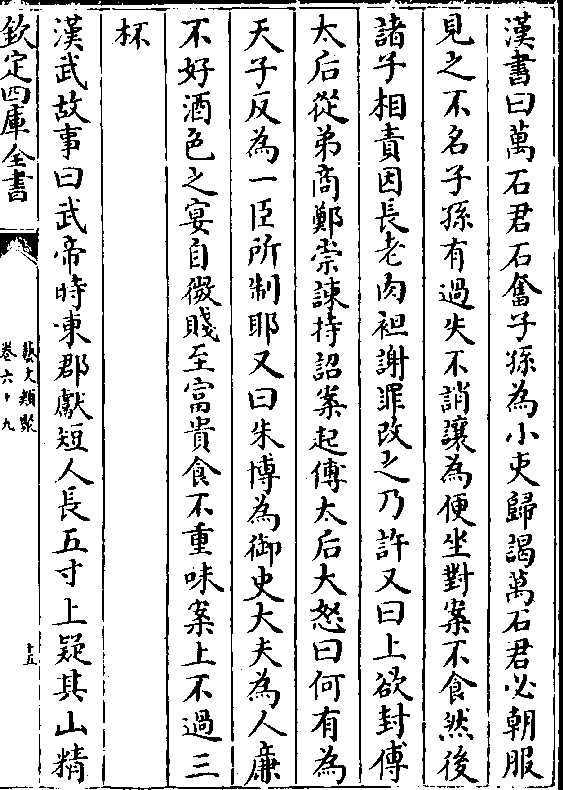 漢書曰萬石君石奮子孫為小吏歸謁萬石君必朝服
見之不名子孫有過失不誚讓為便坐對案不食然後
諸子相責因長老肉袒謝罪改之乃許又曰上欲封傅
太后從弟商鄭崇諫持詔案起傅太后大怒曰何有為
天子反為一臣所制耶又曰朱博為御史大夫為人廉
不好酒色之宴自微賤至富貴食不重味案上不過三
杯
漢武故事曰武帝時東郡獻短人長五寸上疑其山精
欽定四庫全書
藝文類聚
卷六十九
十五